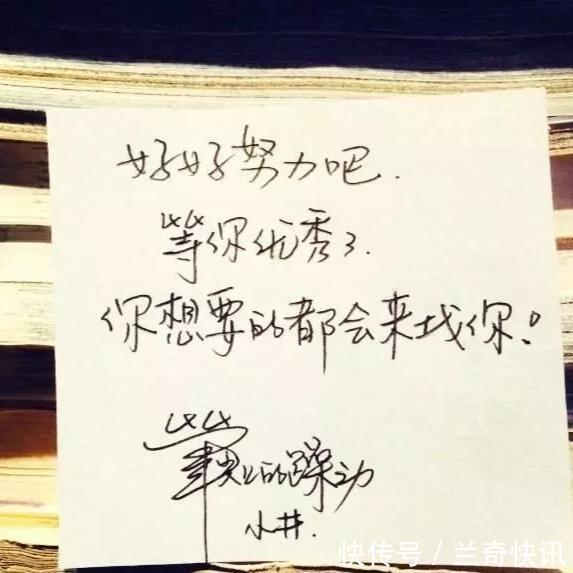 好好努力吧.
等你优秀了.
你想要的都会来找你!
的躁动
小井.
快传号/兰奇快讯